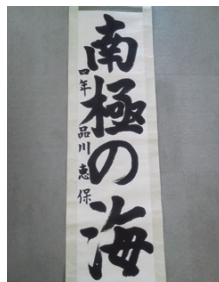 南極の海
四年 品川恵保